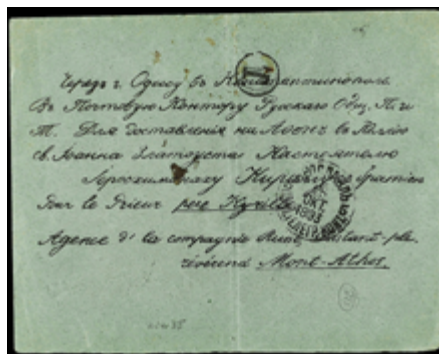 Чрезъ г. Одессу въ Константинополь
Въ Почтовую Контору Русскаго Общ. П. и
Т. Для доставленія на Аѳонъ въ Келію
св. Іоанна Златоуста Настоятелю
Іеросхимонаху Кириллу съ братіею
Pour le Prieur père Kyrille
Agence d' la compagnie Russe
révérend Mont-Athos.